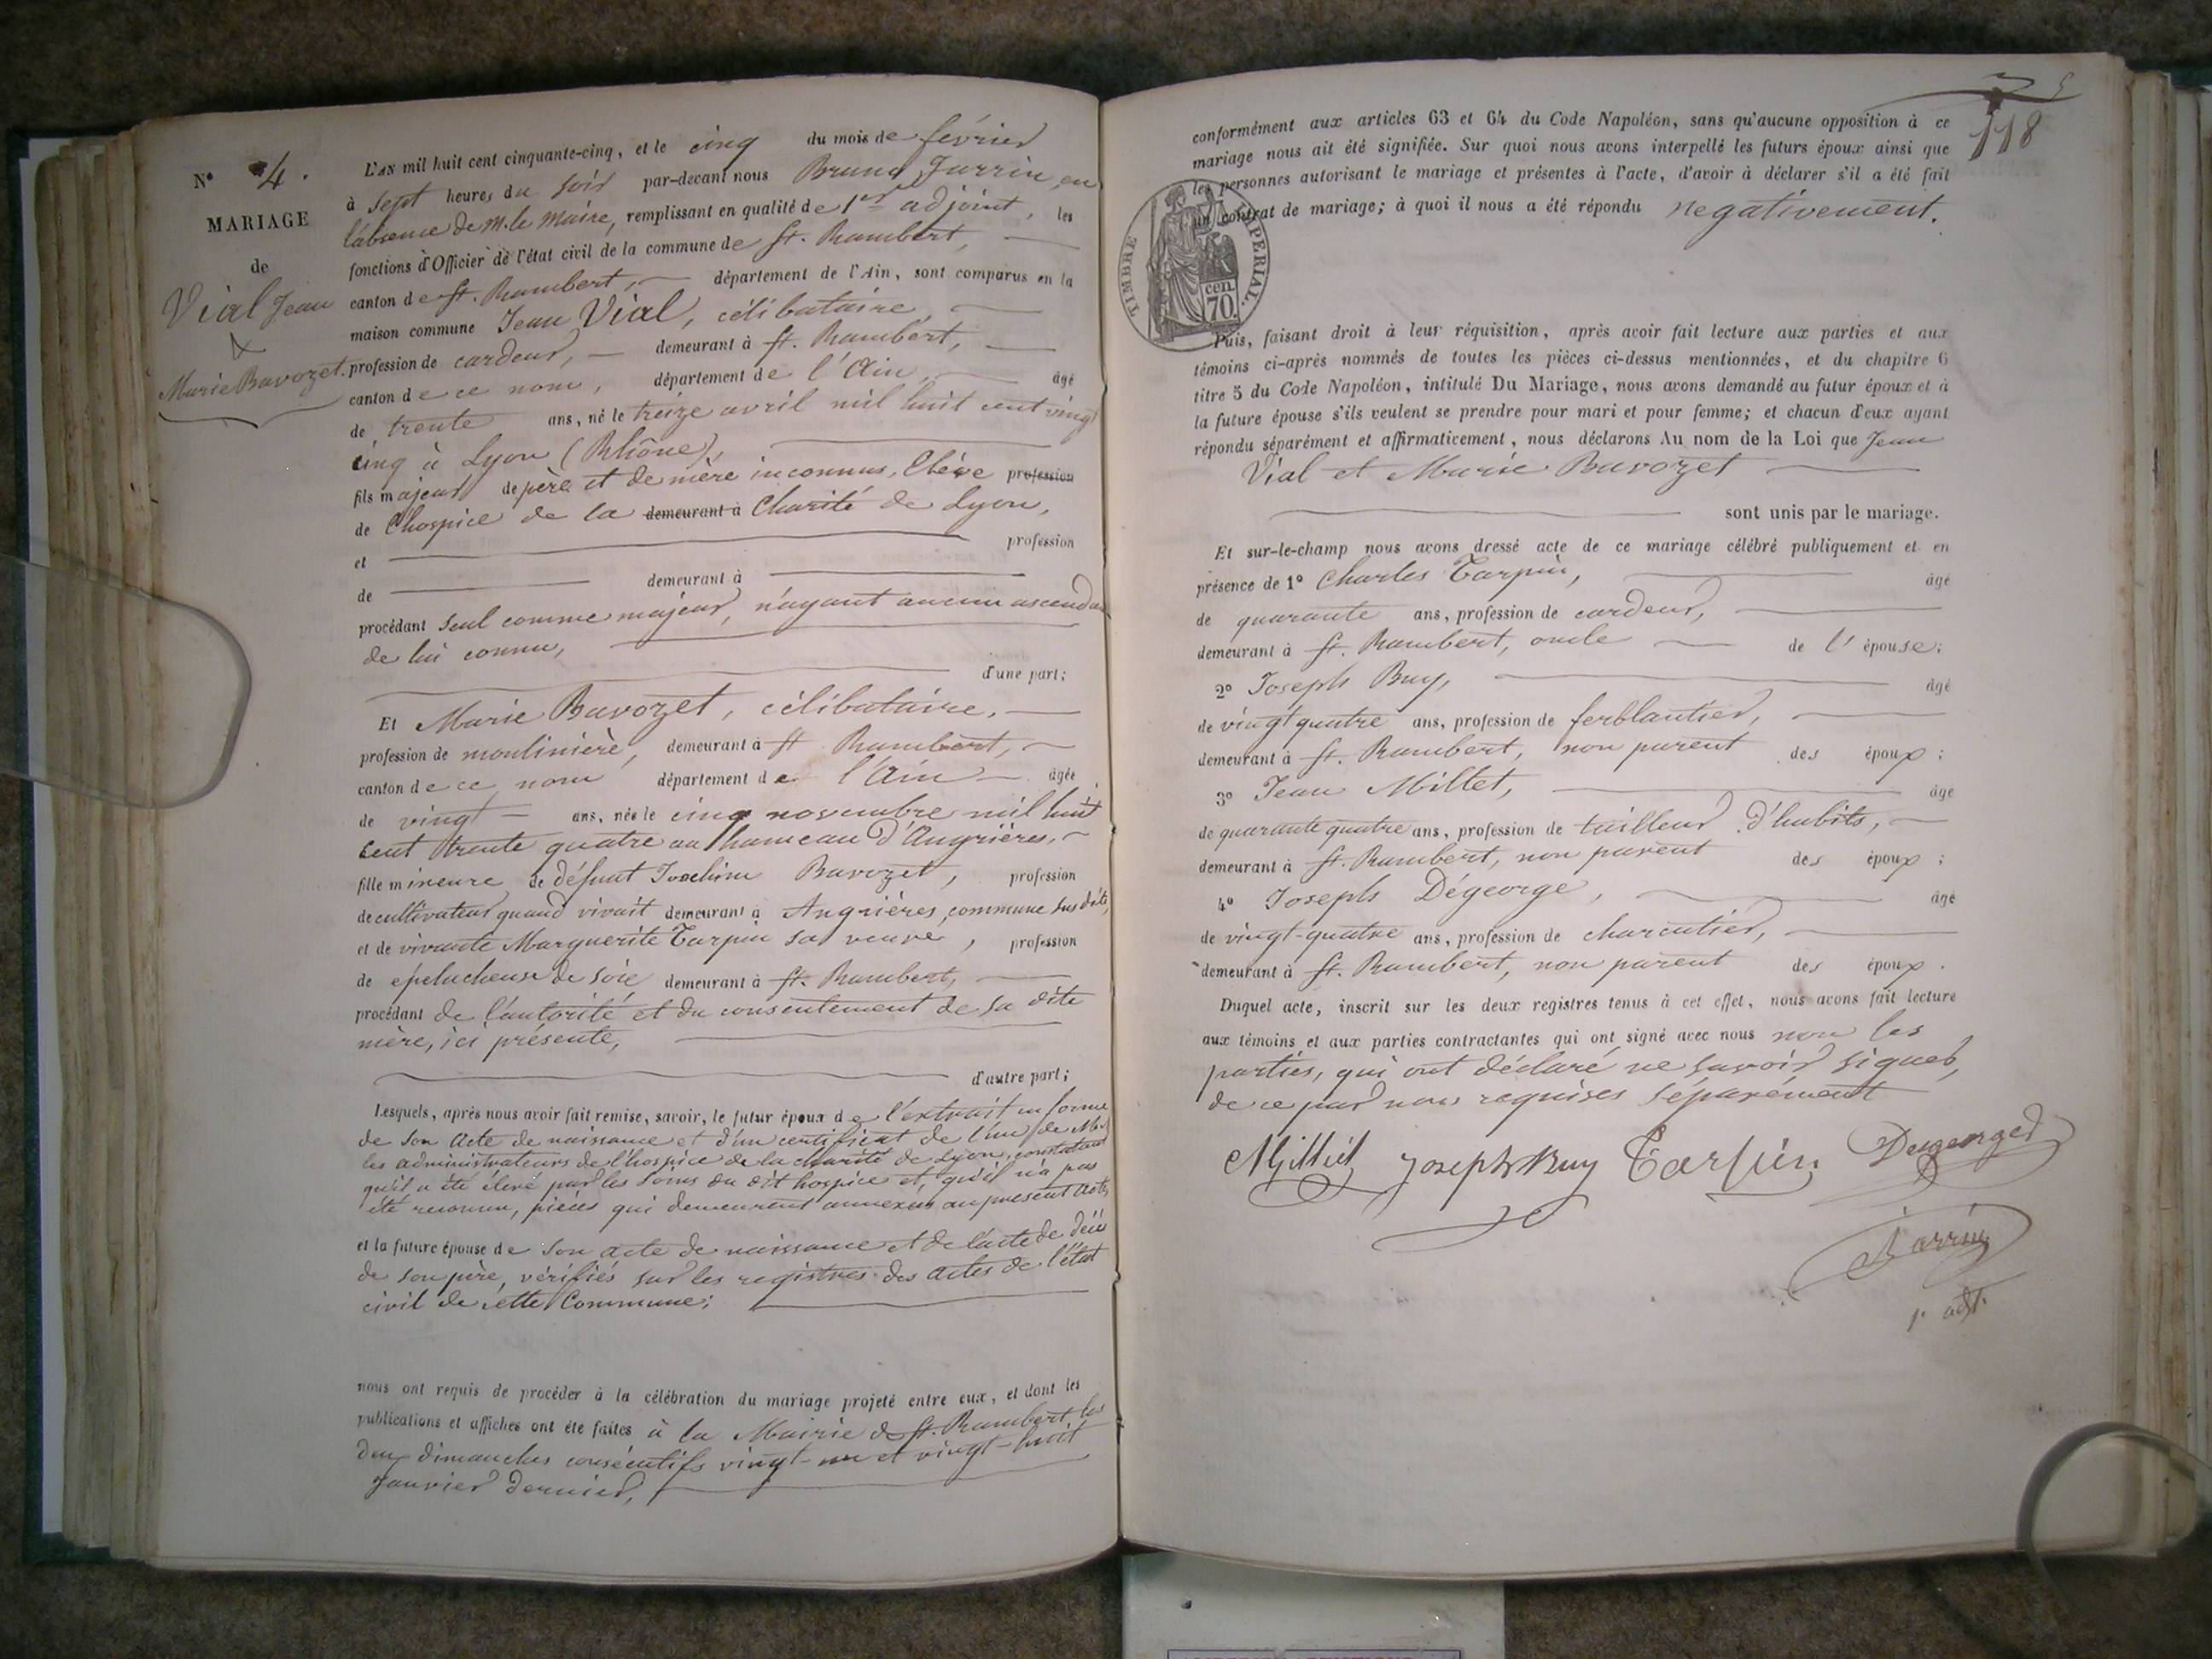 N° 4.
MARIAGE
de
Vial Jean
&
Marie Bavozet.
L'AN mil huit cent cinquante-cinq, et le cinq du mois de février
à sept heures du soir par-devant nous Bruno Jarrin, en
l'absence de M. le Maire, remplissant en qualité de 1er adjoint, les
fonctions d'Officier de l'état civil de la commune de St. Rambert,
canton de St. Rambert, département de l'Ain, sont comparus en la
maison commune Jean Vial, célibataire,
profession de cardeur, demeurant à St. Rambert,
canton de ce nom, département de l'Ain, âgé
de trente ans, né le treize avril mil huit cent vingt
cinq à Lyon (Rhône),
fils majeur de père et de mère inconnus, Elève profession
de l'hospice de la demeurant à Charité de Lyon,
et profession
de demeurant à
procédant seul comme majeur, n'ayant aucun ascendant
de lui connu,
d'une part;
Et Marie Bavozet, célibataire,
profession de moulinière, demeurant à St Rambert,
canton de ce nom département de l'Ain âgée
de vingt ans, née le cinq novembre mil huit
cent trente quatre au hameau d'Angrières,
fille mineure de défunt Joachim Bavozet, profession
de cultivateur quand vivait demeurant à Angrières, commune susdite,
et de vivante Marguerite Tarpin sa veuve, profession
de éplucheuse de soie demeurant à St. Rambert,
procédant de l'autorité et du consentement de sa dite
mère, ici présente,
d'autre part;
Lesquels, après nous avoir fait remise, savoir, le futur époux de l'extrait en forme
de son acte de naissance et d'un certificat de l'un de MM.
les administrateurs de l'hospice de la charité de Lyon, constatant
qu'il a été élevé par les soins du dit hospice et, qu'il n'a pas
été reconnu, pièces qui demeurent annexées au présent acte,
et la future épouse de son acte de naissance et de l'acte de décès
de son père, vérifiés sur les registres des actes de l'état
civil de cette Commune;
nous ont requis de procéder à la célébration du mariage projeté entre eux, et dont les
publications et affiches ont été faites à la Mairie de St. Rambert les
deux dimanches consécutifs vingt-un et vingt-huit
Janvier dernier,
5
118
conformément aux articles 63 et 64 du Code Napoléon, sans qu'aucune opposition à ce
mariage nous ait été signifiée. Sur quoi nous avons interpellé les futurs époux ainsi que
les personnes autorisant le mariage et présentes à l'acte, d'avoir à déclarer s'il a été fait
un contrat de mariage; à quoi il nous a été répondu négativement.
TIMBRE IMPERIAL.
cen.
70.
Puis, faisant droit à leur réquisition, après avoir fait lecture aux parties et aux
témoins ci-après nommés de toutes les pièces ci-dessus mentionnées, et du chapitre 6
titre 5 du Code Napoléon, intitulé Du Mariage, nous avons demandé au futur époux et à
la future épouse s'ils veulent se prendre pour mari et pour femme; et chacun d'eux ayant
répondu séparément et affirmativement, nous déclarons Au nom de la Loi que Jean
Vial et Marie Bavozet
sont unis par le mariage.
Et sur-le-champ nous avons dressé acte de ce mariage célébré publiquement et en
présence de 1° Charles Tarpin, âgé
de quarante ans, profession de cardeur,
demeurant à St. Rambert, oncle de l'épouse;
2° Joseph Buy, âgé
de vingt quatre ans, profession de ferblantier,
demeurant à St. Rambert, non parent des époux;
3° Jean Millet, âgé
de quarante quatre ans, profession de tailleur d'habits,
demeurant à St. Rambert, non parent des époux;
4° Joseph Dégeorge, âgé
de vingt-quatre ans, profession de charcutier,
demeurant à St. Rambert, non parent des époux.
Duquel acte, inscrit sur les deux registres tenus à cet effet, nous avons fait lecture
aux témoins et aux parties contractantes qui ont signé avec nous non les
parties, qui ont déclaré ne savoir signer,
de ce par nous requises séparément
Millet Joseph Buy Tarpin Degeorges
Jarrin
1. adjt.